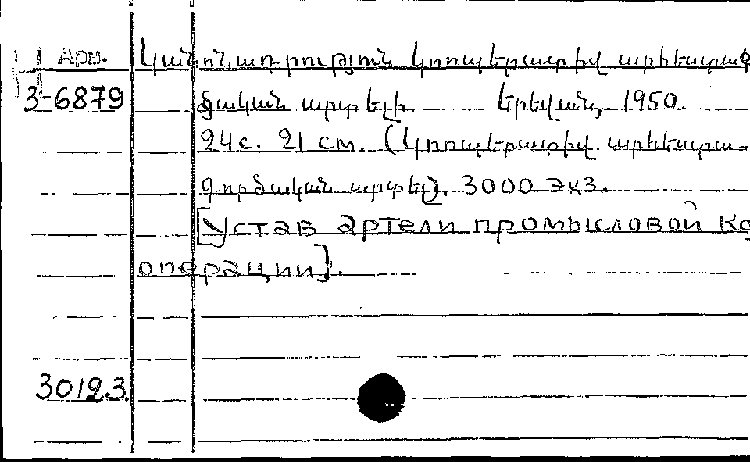 Арм. Կանոնադրություն կոոպերատիվ արհեստագ
3-6879 ծական արտելի. Երևան, 1950.
24 с. 21 см. (Կոոպերատիվ արհեստա-
գործական արտել). 3000 экз.
[Устав артели промысловой ко
операции].
30123